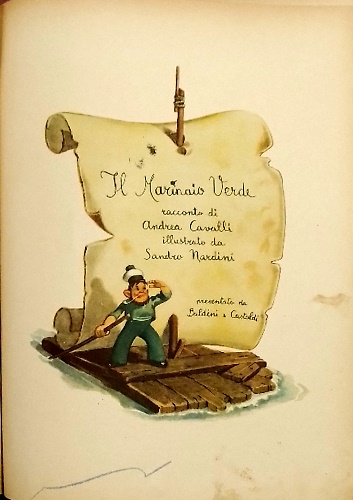 Il Marinaio Verde
racconto di
Andrea Cavalli
illustrato da
Sandro Nardini
presentato da
Baldini & Castoldi